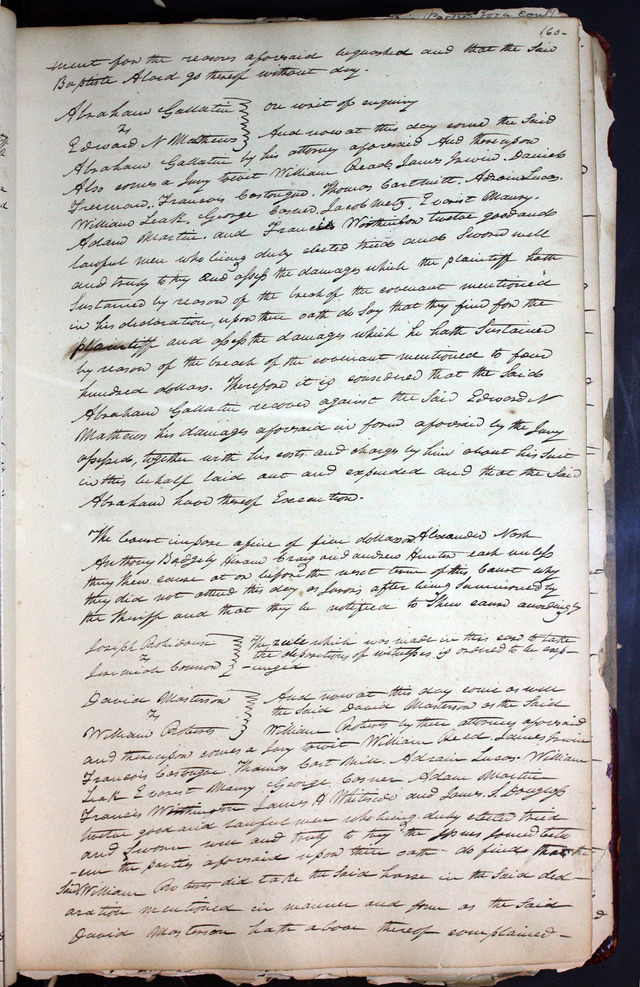 160-
ment for the reasons aforesaid inquashed and that the Said
Baptiste Alard go thereof without day.
Abraham Gallatin
vs
Edward N Mathews
on writ of enquiry
And now at this day come the Said
Abraham Gallatin by his attorney aforesaid And thereupon
Also comes a Jury towit William Read, James Irwin, Daniel
Freeman, Francois Costongue, Thomas Cart Mill, Adrain Lucas,
William Leak George Casner, Jacob Metz, Evarist Maury,
Adam Martin, and Francis Worthinton twelve good and
lawful men who being duly elected tried and Sworn well
and truly to try and assess the damages which the plaintiff hath
Sustained by reason of the breach of the covenant mentioned
in his declaration, upon their oath do Say that they find for the
plaintiff and assess the damages which he hath Sustained
by reason of the breach of the covenant mentioned to four
hundred dollars. Therefore it is considered that the Said
Abraham Gallatin recover against the Said Edward N
Mathews his damages aforesaid in form aforesaid by the Jury
assessed, together with his costs and charges by him about his Suit
in this behalf laid out and expended and that the Said
Abraham have thereof Execution.
The Court impose a fine of five dollars on Alexander Nash
Anthony Badgely Hiram Craig and Andrew Hunton each unless
they Shew cause at or before the next term of this Court why
they did not attend this day as Jurors after being Summoned by
the Sheriff and that they be notified to Shew cause accordingly
Joseph Robidoux
vs
Jeremiah Connor
The rule which was made in this case to take
the depositions of witnesses is ordered to be exp-
-unged
David Masterson
vs
William Roberts
And now at this day come as well
the Said David Masterson as the Said
William Roberts by their attorneys aforesaid
and thereupon comes a Jury towit William Read, James Irwin
Francois Costongue, Thomas Cart Mill, Adrain Lucas, William
Leak Evarist Maury, George Casner Adam Martin
Francis Worthington James A Whiteside and James S. Douglass
twelve good and lawful men who being duly elected tried
and Sworn well and truly to try the Issues Joined betw
-een the parties aforesaid upon their oath do find that the
Said William Roberts did take the Said horse in the Said decl-
aration mentioned in manner and form as the Said
David Masterson hath above thereof complained-